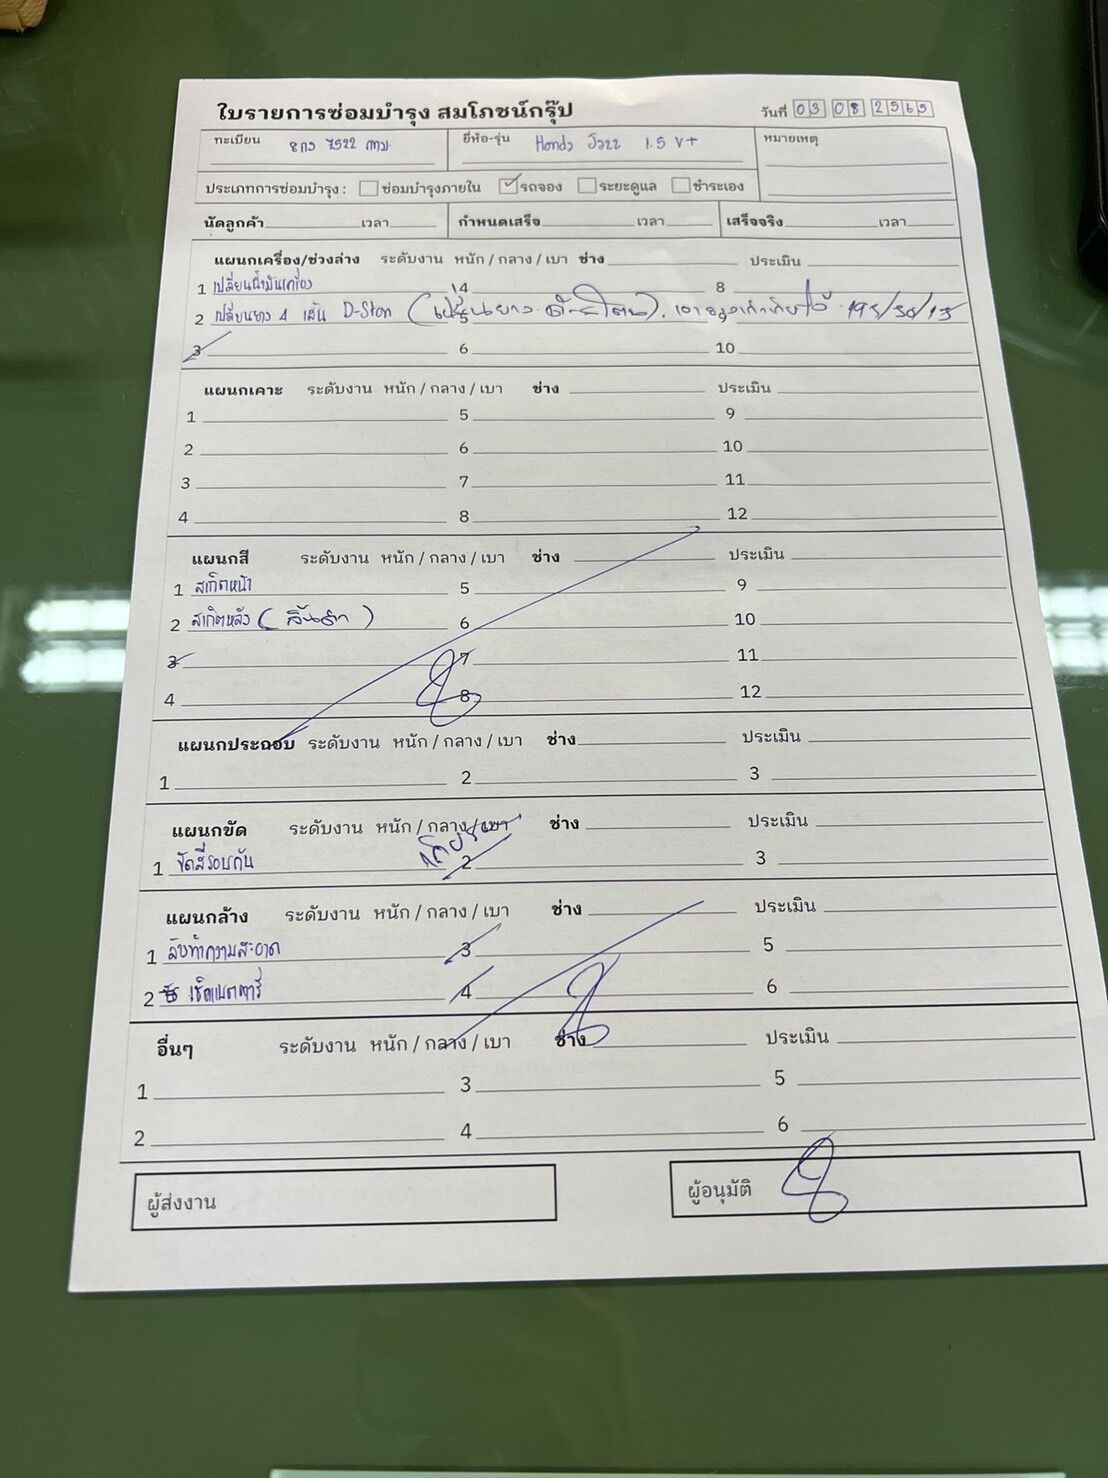 ใบรายการซ่อมบำรุง สมโภชน์กรุ๊ป วันที่ 03 08 2565
ทะเบียน 8กว 7522 กทม. ยี่ห้อ-รุ่น Honda Jazz 1.5 V+ หมายเหตุ
ประเภทการซ่อมบำรุง : ซ่อมบำรุงภายใน รถจอง ระยะดูแล ชำระเอง
นัดลูกค้า เวลา กำหนดเสร็จ เวลา เสร็จจริง เวลา
แผนกเครื่อง/ช่วงล่าง ระดับงาน หนัก / กลาง / เบา ช่าง ประเมิน
1 เปลี่ยนน้ำมันเครื่อง 4 8
2 เปลี่ยนยาง 4 เส้น D-Ston (เปลี่ยนยาง 5 9 195/50/15
3 6 10
แผนกเคาะ ระดับงาน หนัก / กลาง / เบา ช่าง ประเมิน
1 5 9
2 6 10
3 7 11
4 8 12
แผนกสี ระดับงาน หนัก / กลาง / เบา ช่าง ประเมิน
1 สเกิตหน้า 5 9
2 สเกิตหลัง (ลิ้นดำ) 6 10
3 7 11
4 8 12
แผนกประกอบ ระดับงาน หนัก / กลาง / เบา ช่าง ประเมิน
1 2 3
แผนกขัด ระดับงาน หนัก / กลาง / เบา ช่าง ประเมิน
1 ขัดสีรอบคัน 2 3
แผนกล้าง ระดับงาน หนัก / กลาง / เบา ช่าง ประเมิน
1 ล้างทำความสะอาด 3 5
2 เช็คแบตเตอรี่ 4 6
อื่นๆ ระดับงาน หนัก / กลาง / เบา ช่าง ประเมิน
1 3 5
2 4 6
ผู้ส่งงาน ผู้อนุมัติ